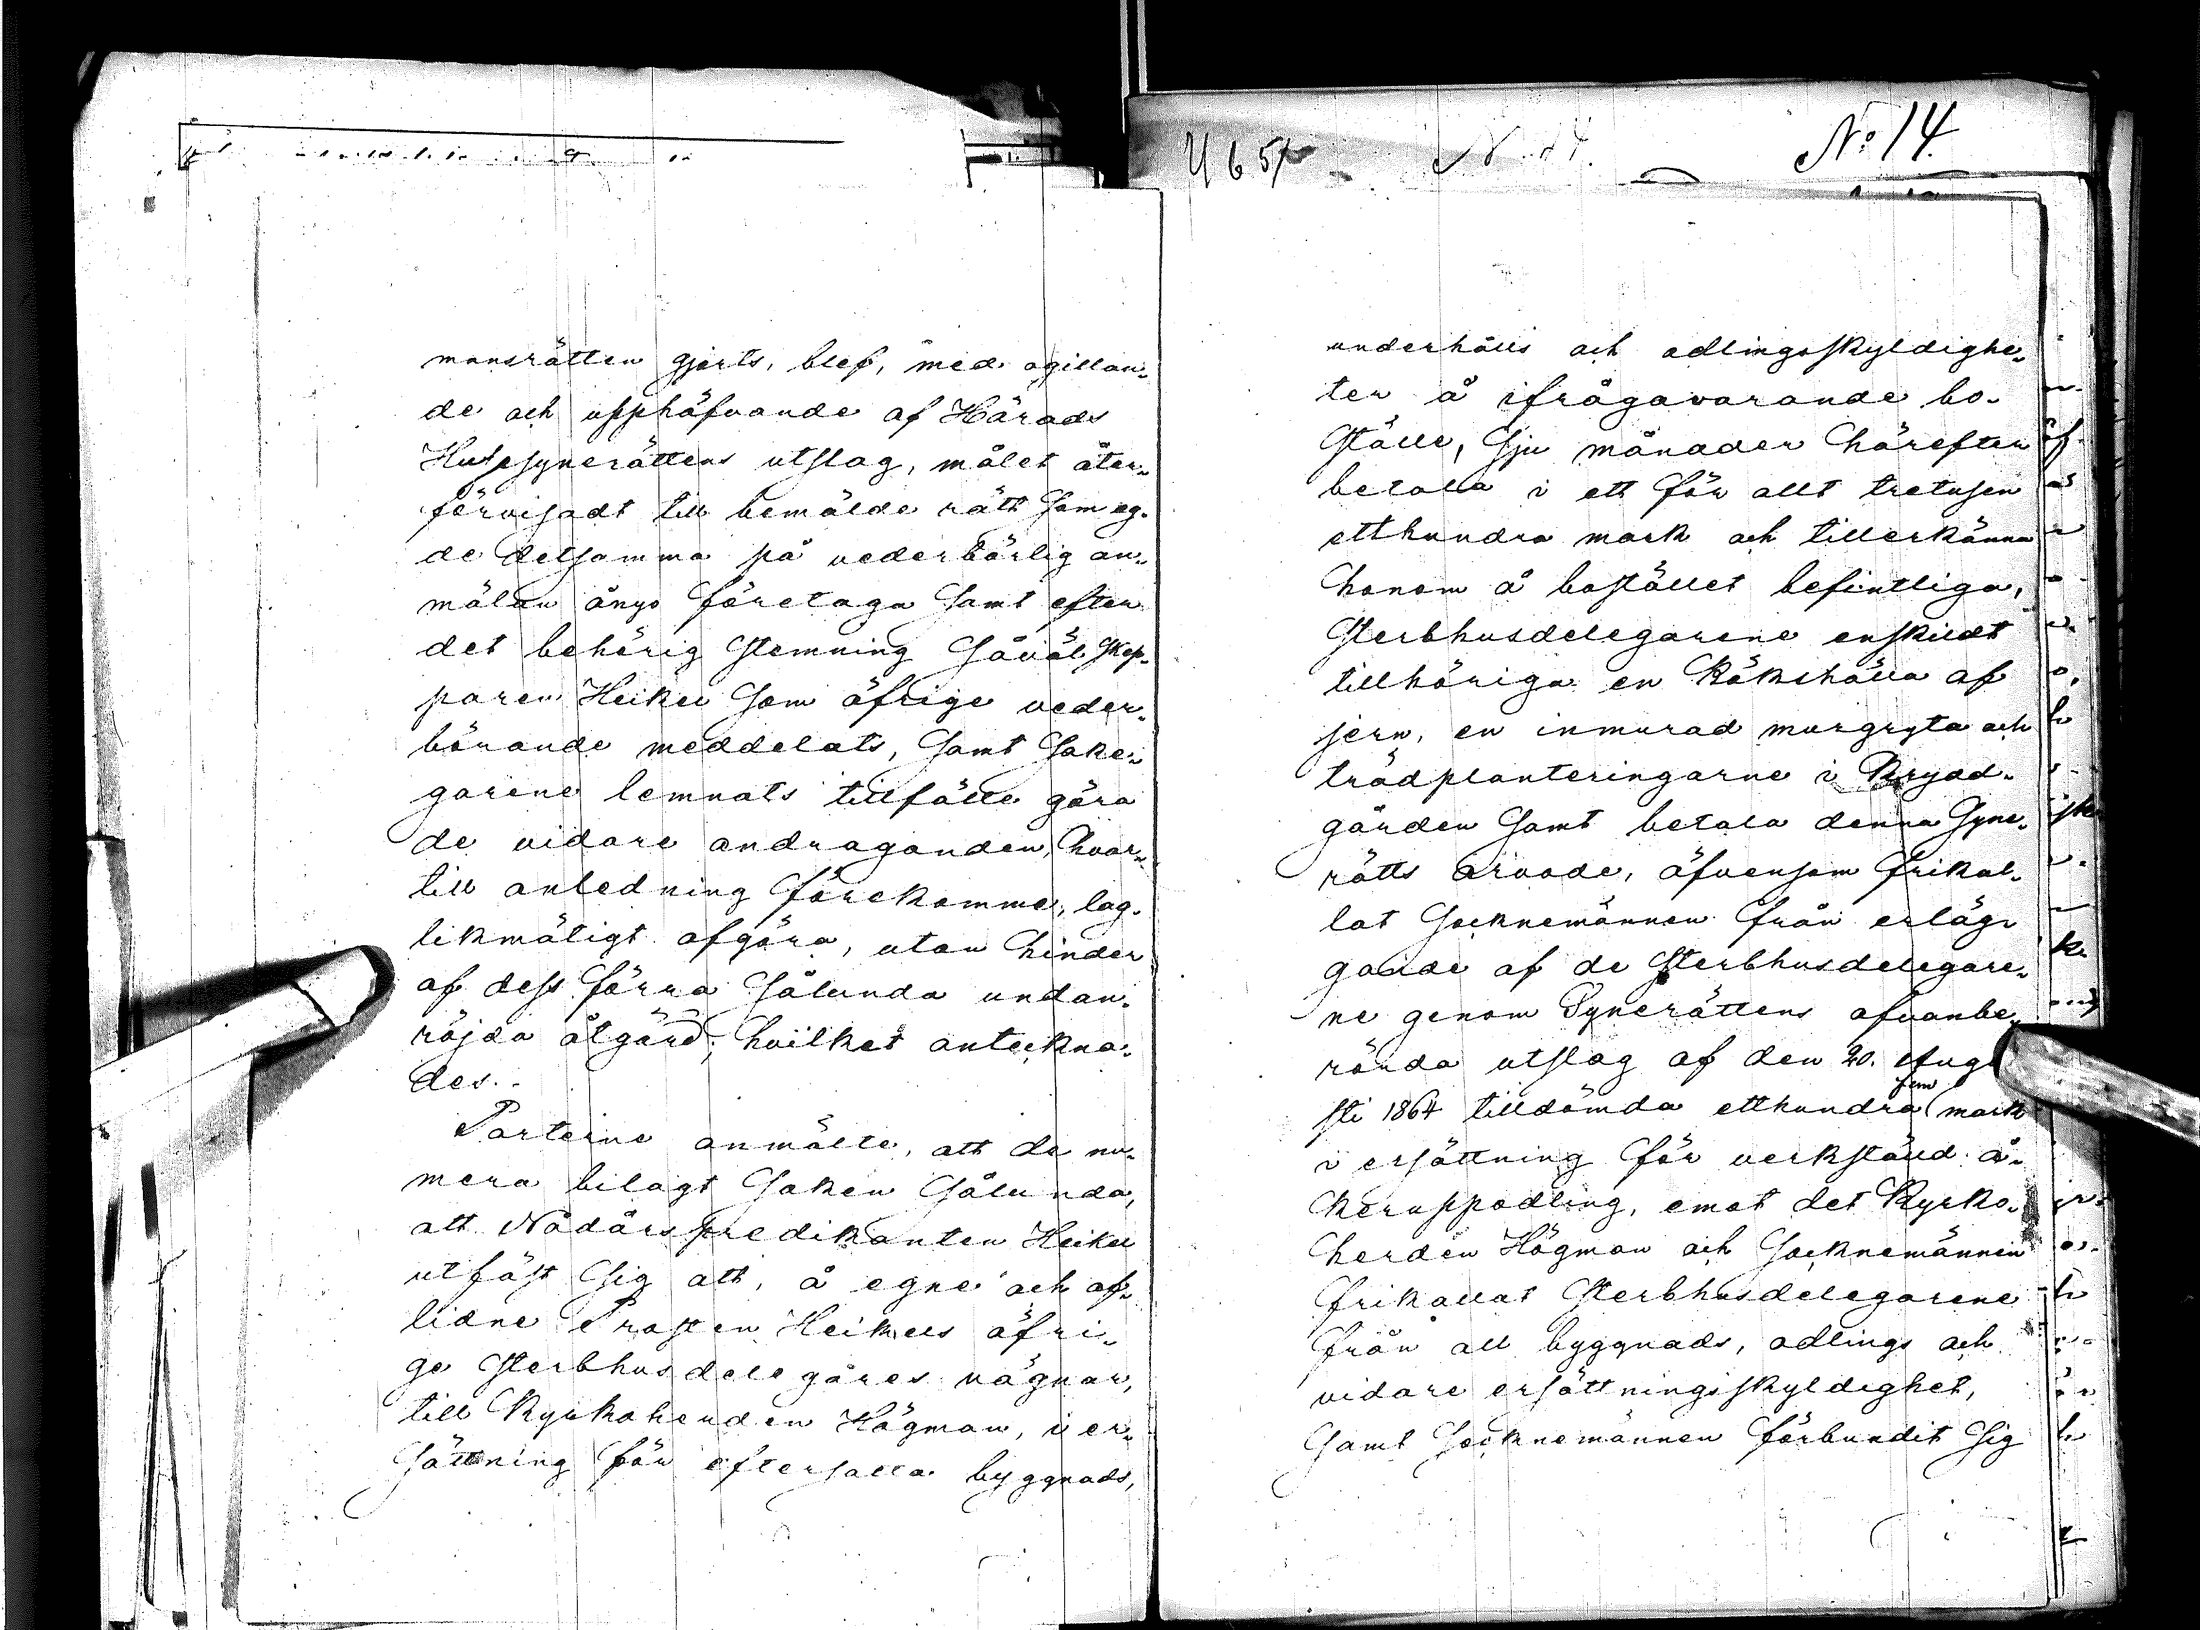 mansrätten gjorts, blef, med ogillan-
de och upphäfvande af Härads
Husesynerättens utslag, målet åter-
förvisadt till bemälde rätt som eg-
de detsamma på vederbörlig an-
mälan ånyo företaga samt efter
det behörig stemning såväl Skep-
paren Heikel som öfrige veder-
börande meddelats, samt sake-
garene lemnats tillfälle göra
de vidare andraganden, hvar-
till anledning förekomme, lag-
likmätigt afgöra, utan hinder
af dess förra sålunda undan-
röjda åtgärd; hvilket anteckna-
des.
Parterne anmälte, att de nu-
mera bilagt saken sålunda,
att Nådårspredikanten Heikel
utfäst sig att, å egne och af-
lidne Prosten Heikels öfri-
ge sterbhusdelegares vägnar,
till Kyrkoherden Högman, i er-
sättning för eftersatta byggnads,
4657
No 14.
No 14.
underhålls och odlingsskyldighe-
ter å ifrågavarande bo-
ställe, sju månader härefter
betala i ett för allt tretusen
etthundra mark och tillerkänna
honom å bostället befintliga,
sterbhusdelegarene enskildt
tillhöriga en kökshälla af
jern, en inmurad murgryta och
trädplanteringarne i Krydd-
gården samt betala denna syne-
rätts arvode, äfvensom frikal-
lat socknemännen från erläg-
gande af de sterbhusdelegare-
ne genom Synerättens ofvanbe-
rörda utslag af den 20. Augu
sti 1864 tilldömda etthundra fem mark
i ersättning för verkställd å-
keruppodling, emot det Kyrko-
herden Högman och socknemännen
frikallat sterbhusdelegarene
från all byggnads, odlings och
vidare ersättningsskyldighet,
samt socknemännen förbundit sig